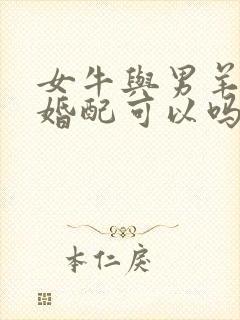 女牛與男羊
婚配可以吗
本仁戾